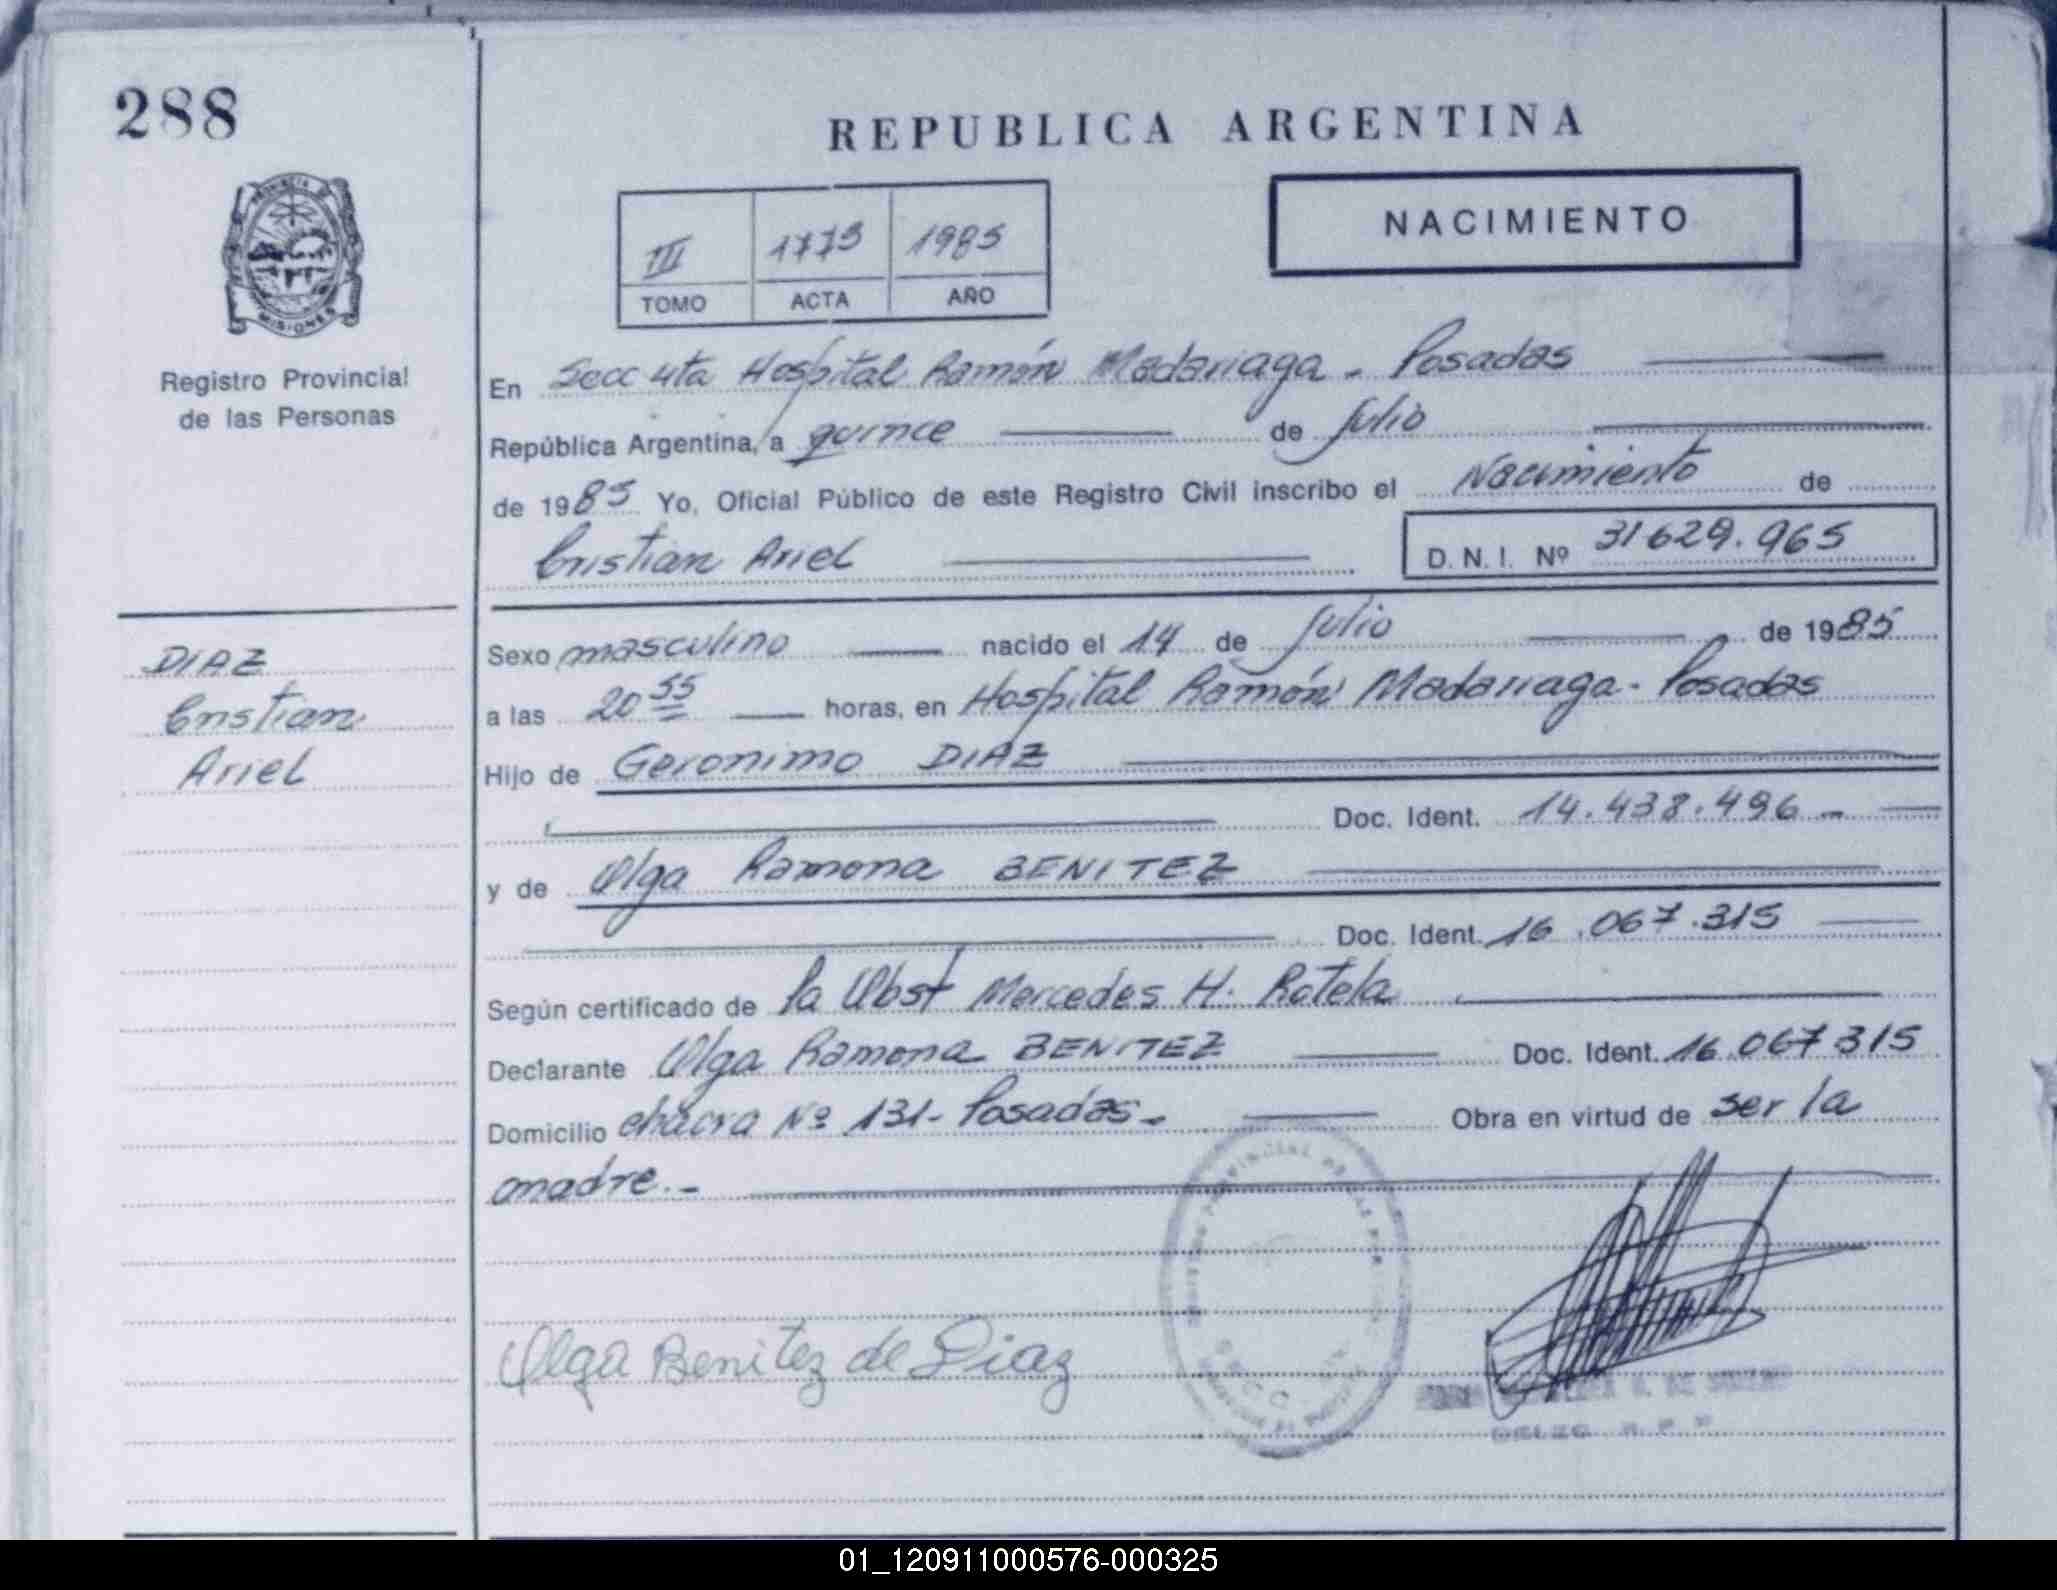 288
REPUBLICA ARGENTINA
NACIMIENTO
III 1773 1985
TOMO ACTA AÑO
MISIONES
Registro Provincial
de las Personas
En Secc 4ta Hospital Ramón Madariaga - Posadas
República Argentina, a quince de Julio
de 1985 Yo, Oficial Público de este Registro Civil inscribo el Nacimiento de
Cristian Ariel D.N.I. Nº 31629.965
DIAZ
Cristian
Ariel
Sexo masculino nacido el 14 de Julio de 1985
a las 20 55 horas, en Hospital Ramón Madariaga - Posadas
Hijo de Geronimo DIAZ
Doc. Ident. 14.438.496 -
y de Olga Ramona BENITEZ
Doc. Ident. 16.067.315
Según certificado de la Obst Mercedes H. Rotela
Declarante Olga Ramona BENITEZ Doc. Ident. 16.067 315
Domicilio chacra Nº 131 - Posadas - Obra en virtud de ser la
madre. -
Olga Benitez de Diaz
01_120911000576-000325